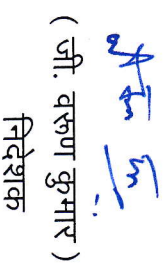 ( जी. वरुण कुमार )
निदेशक